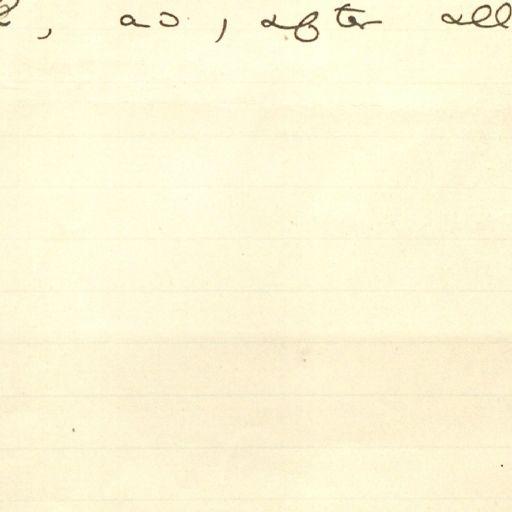 , as, after all